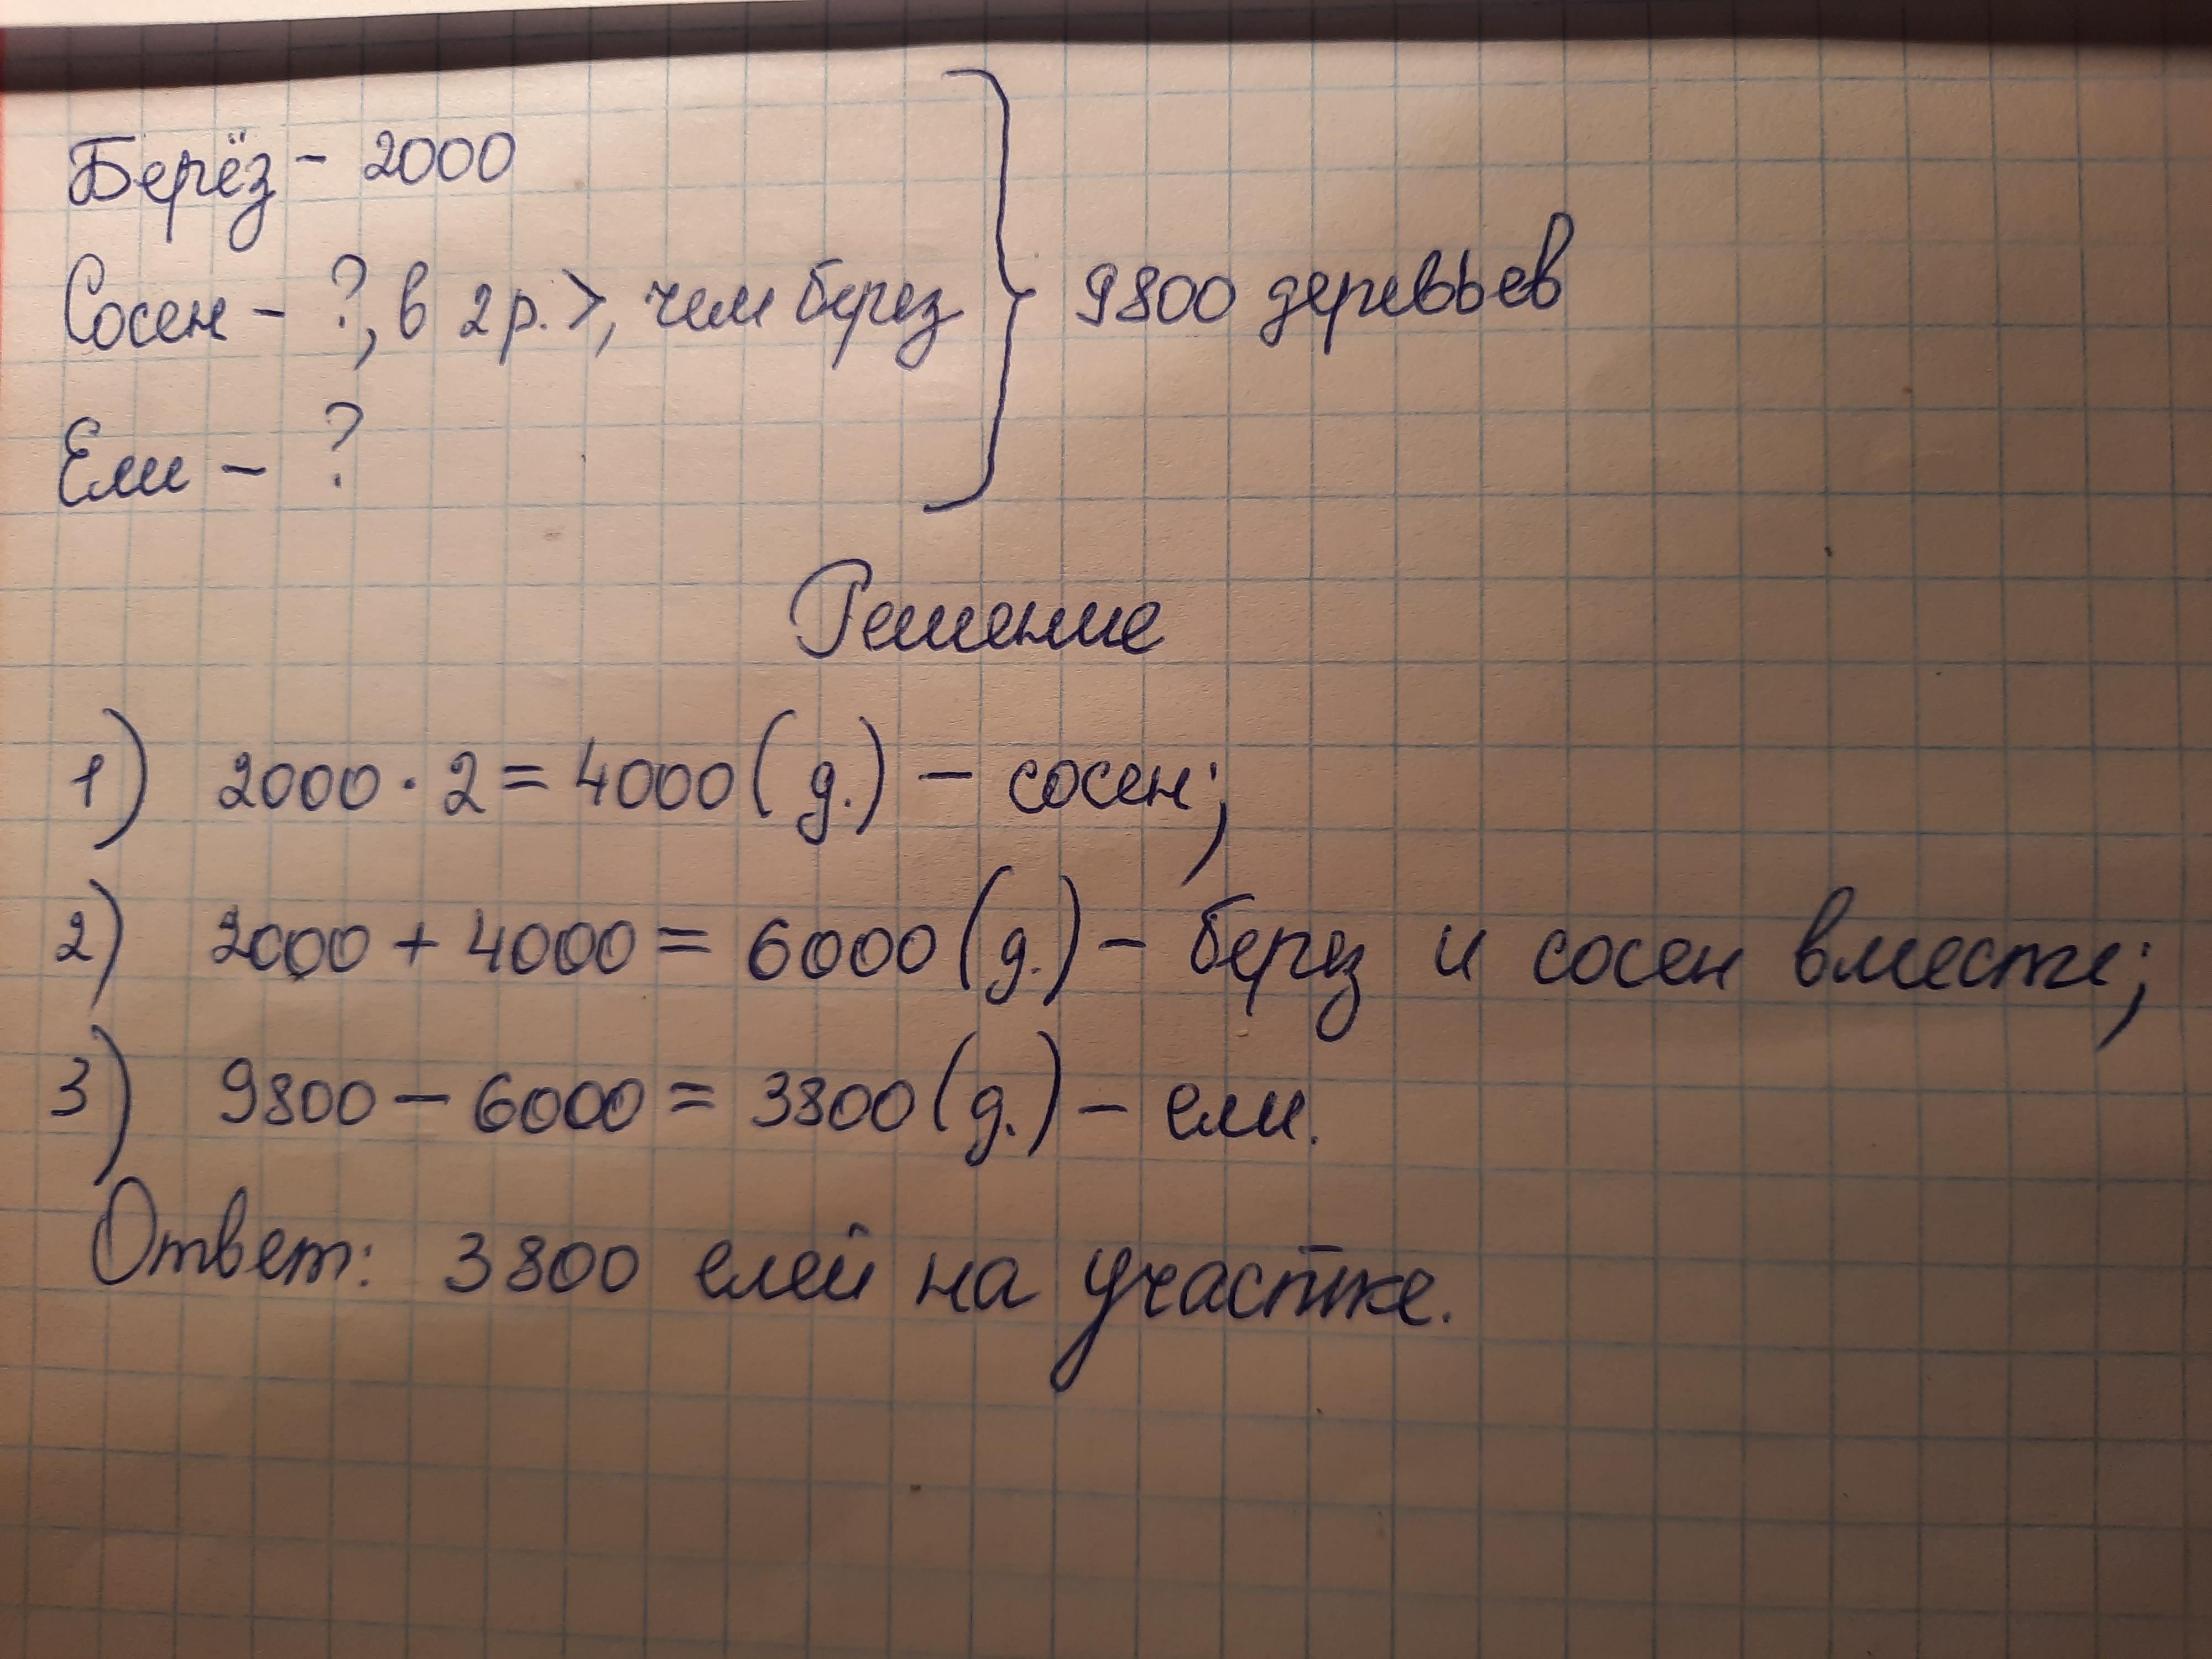 Берёз - 2000
Сосен - ?, в 2 р. >, чем берез
9800 деревьев
Ели - ?
Решение
1) 2000 · 2 = 4000 (д.) - сосен;
2) 2000 + 4000 = 6000 (д.) - берез и сосен вместе;
3) 9800 - 6000 = 3800 (д.) - ели.
Ответ: 3800 елей на участке.